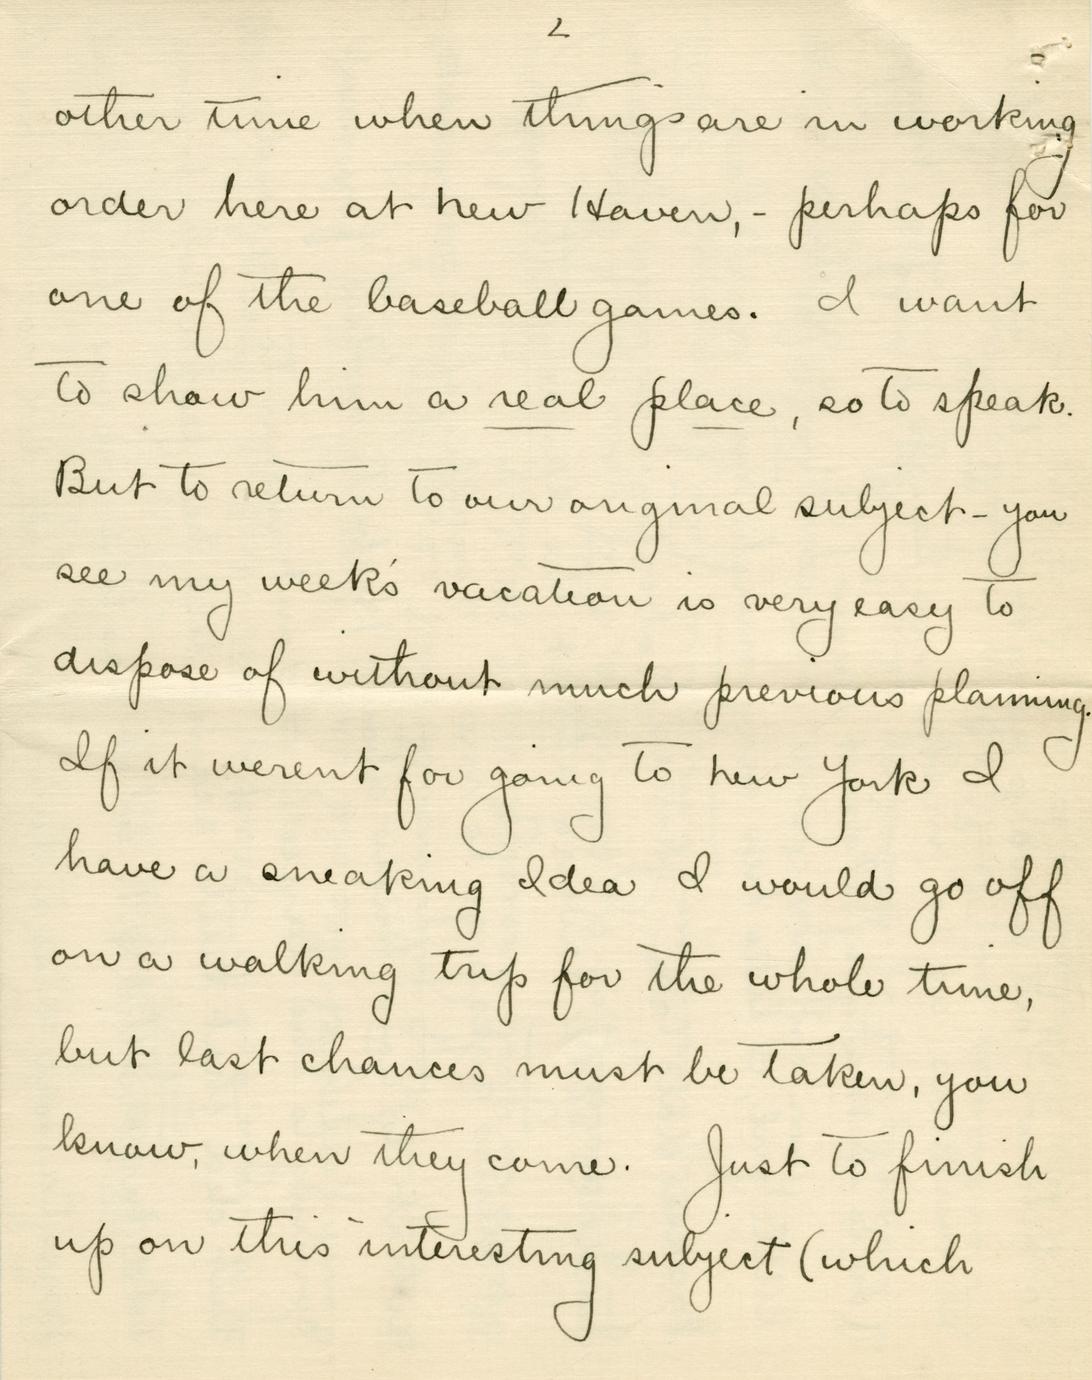 2
other time when things are in working
order here at new Haven,- perhaps for
one of the baseball games. I want
to show him a real place, so to speak.
But to return to our original subject - you
see my week's vacation is very easy to
dispose of without much previous planning.
If it werent for going to new York I
have a sneaking Idea I would go off
on a walking trip for the whole time,
but last chances must be taken, you
know, when they come. Just to finish
up on this interesting subject (which